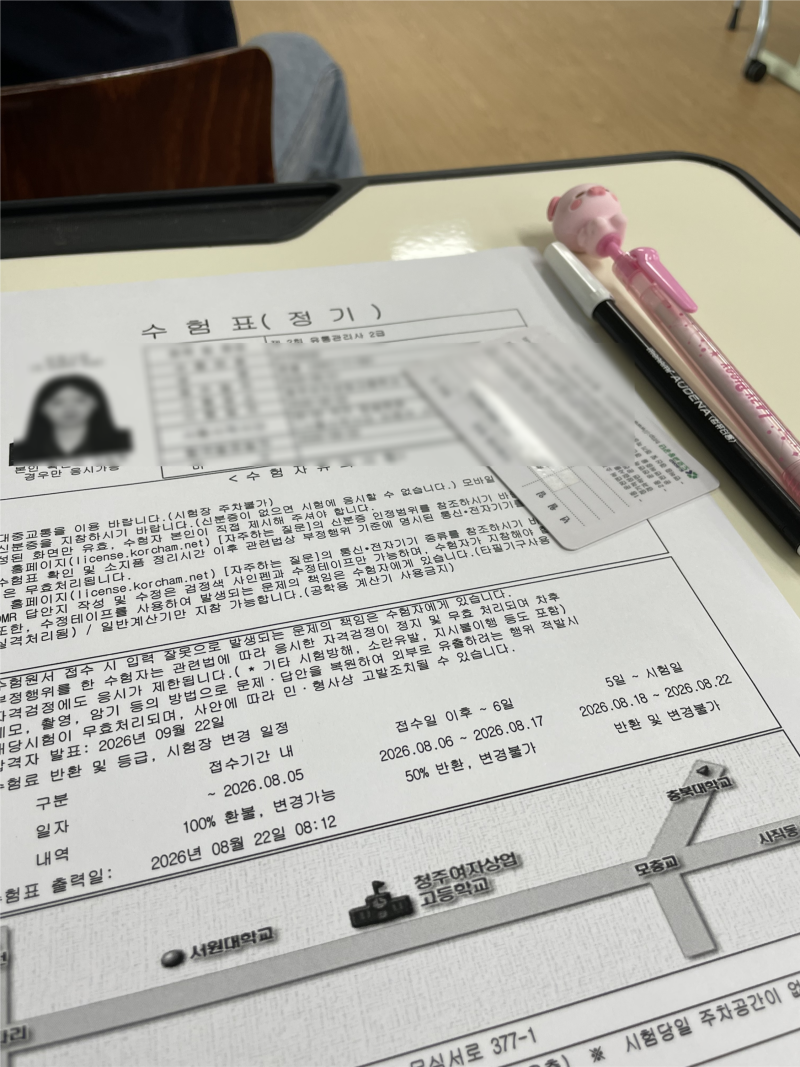 수 험 표( 정 기 )
제 2회 유통관리사 2급
경우만 응시가능
< 수 험 자 유 의
대중교통을 이용 바랍니다.(시험장 주차불가)
신분증을 지참하시기 바랍니다.(신분증이 없으면 시험에 응시할 수 없습니다.) 모바일
정된 화면만 유효, 수험자 본인이 직접 제시해 주셔야 합니다.
홈페이지(license.korcham.net) [자주하는 질문]의 신분증 인정범위를 참조하시기 바
수험표 확인 및 소지품 정리시간 이후 관련법상 부정행위 기준에 명시된 통신·전자기기를
은 무효처리됩니다.
홈페이지(license.korcham.net) [자주하는 질문]의 통신·전자기기 종류를 참조하시기
OMR 답안지 작성 및 수정은 검정색 사인펜과 수정테이프만 가능하며, 수험자가 지참해야
또한, 수정테이프를 사용하여 발생되는 문제의 책임은 수험자에게 있습니다.(타필기구사용
실격처리됨) / 일반계산기만 지참 가능합니다.(공학용 계산기 사용금지)
수험원서 접수 시 입력 잘못으로 발생되는 문제의 책임은 수험자에게 있습니다.
부정행위를 한 수험자는 관련법에 따라 응시한 자격검정이 정지 및 무효 처리되며 차후
자격검정에도 응시가 제한됩니다.( * 기타 시험방해, 소란유발, 지시불이행 등도 포함)
메모, 촬영, 암기 등의 방법으로 문제·답안을 복원하여 외부로 유출하려는 행위 적발시
해당시험이 무효처리되며, 사안에 따라 민·형사상 고발조치될 수 있습니다.
합격자 발표: 2026년 09월 22일
수험료 반환 및 등급, 시험장 변경 일정
구분 접수기간 내 접수일 이후 ~ 6일 5일 ~ 시험일
일자 ~ 2026.08.05 2026.08.06 ~ 2026.08.17 2026.08.18 ~ 2026.08.22
내역 100% 환불, 변경가능 50% 반환, 변경불가 반환 및 변경불가
수험표 출력일: 2026년 08월 22일 08:12
충북대학교
사직동
모충교
청주여자상업
고등학교
서원대학교
모심서로 377-1
※ 시험당일 주차공간이 없
AUDENA